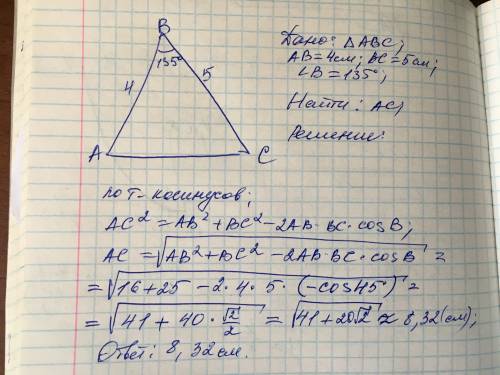 B
135°
4
5
A
C
Дано: ΔABC;
AB=4см; BC=5см;
∠B=135°;
Найти: AC,
Решение:
по т-косинусов;
AC²=AB²+BC²-2AB·BC·cosB;
AC=√AB²+BC²-2AB·BC·cosB =
=√16+25-2·4·5·(-cos45°) =
=√41+40·√2/2 =√41+20√2 ≈ 8,32(см);
Ответ: 8,32см.